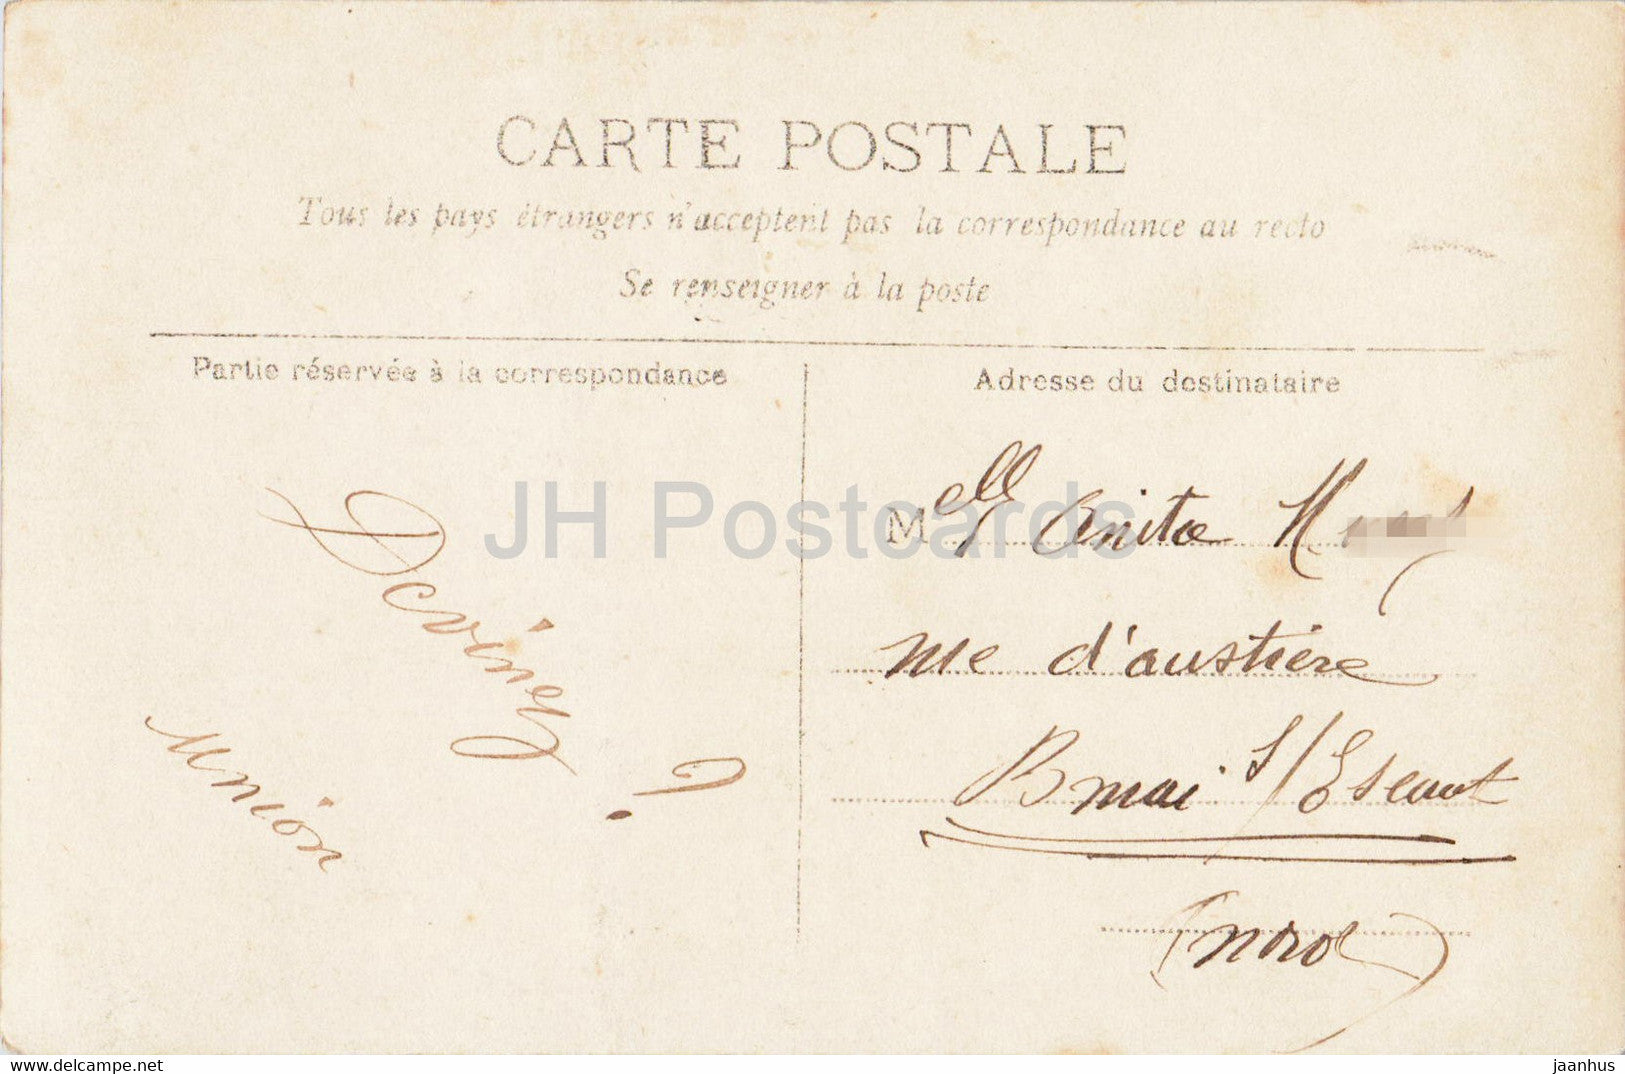 CARTE POSTALE
Tous les pays étrangers n'acceptent pas la correspondance au recto
Se renseigner à la poste
Partie réservée à la correspondance
Adresse du destinataire
Devinez
?
union
Melle Anita
rue d'austière
s/Escaut
(nord)
JH Postcards
delcampe.net
jaanhus